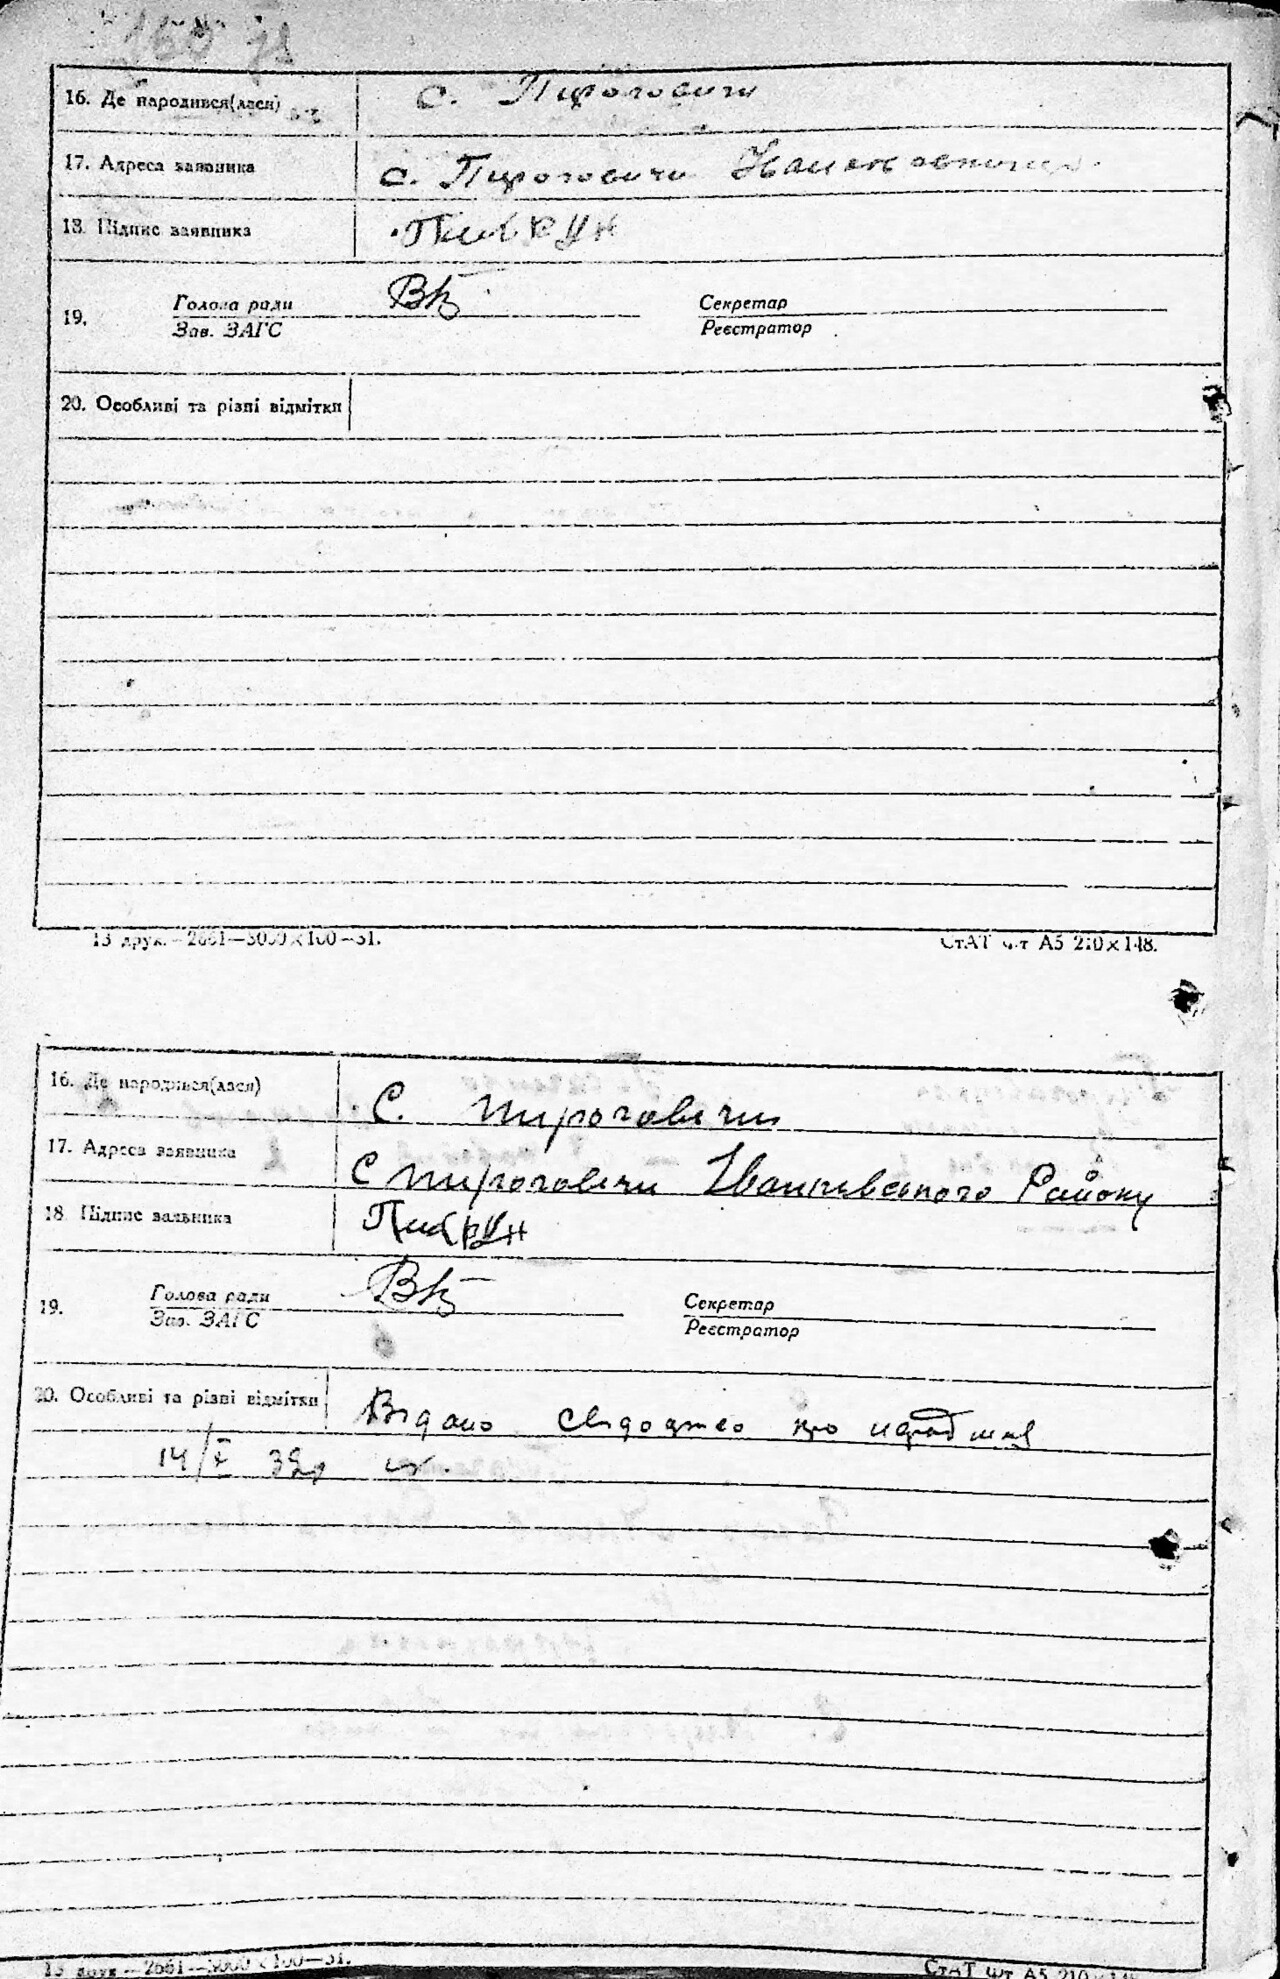 16. Де народився(лася) с. Пироговичи
17. Адреса заявника с. Пироговичи
18. Підпис заявника
19. Голова ради Секретар
Зав. ЗАГС Реєстратор
20. Особливі та різні відмітки
13 друк.—2661—3000×100—31. СтАТ ф-т А5 210×148.
16. Де народився(лася) С. Пироговичи
17. Адреса заявника С Пироговичи Іванківського Району
18. Підпис заявника
19. Голова ради Секретар
Зав. ЗАГС Реєстратор
20. Особливі та різні відмітки Видано про
14/X 32р
13 друк.—2661—3000×100—31. СтАТ ф-т А5 210×148